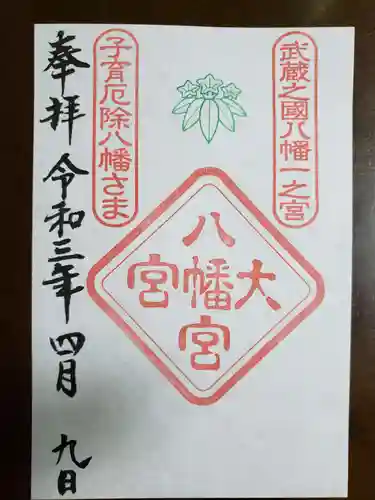 武蔵之國八幡一之宮
大宮
八幡宮
子育厄除八幡さま
奉拝 令和三年 四月 九日